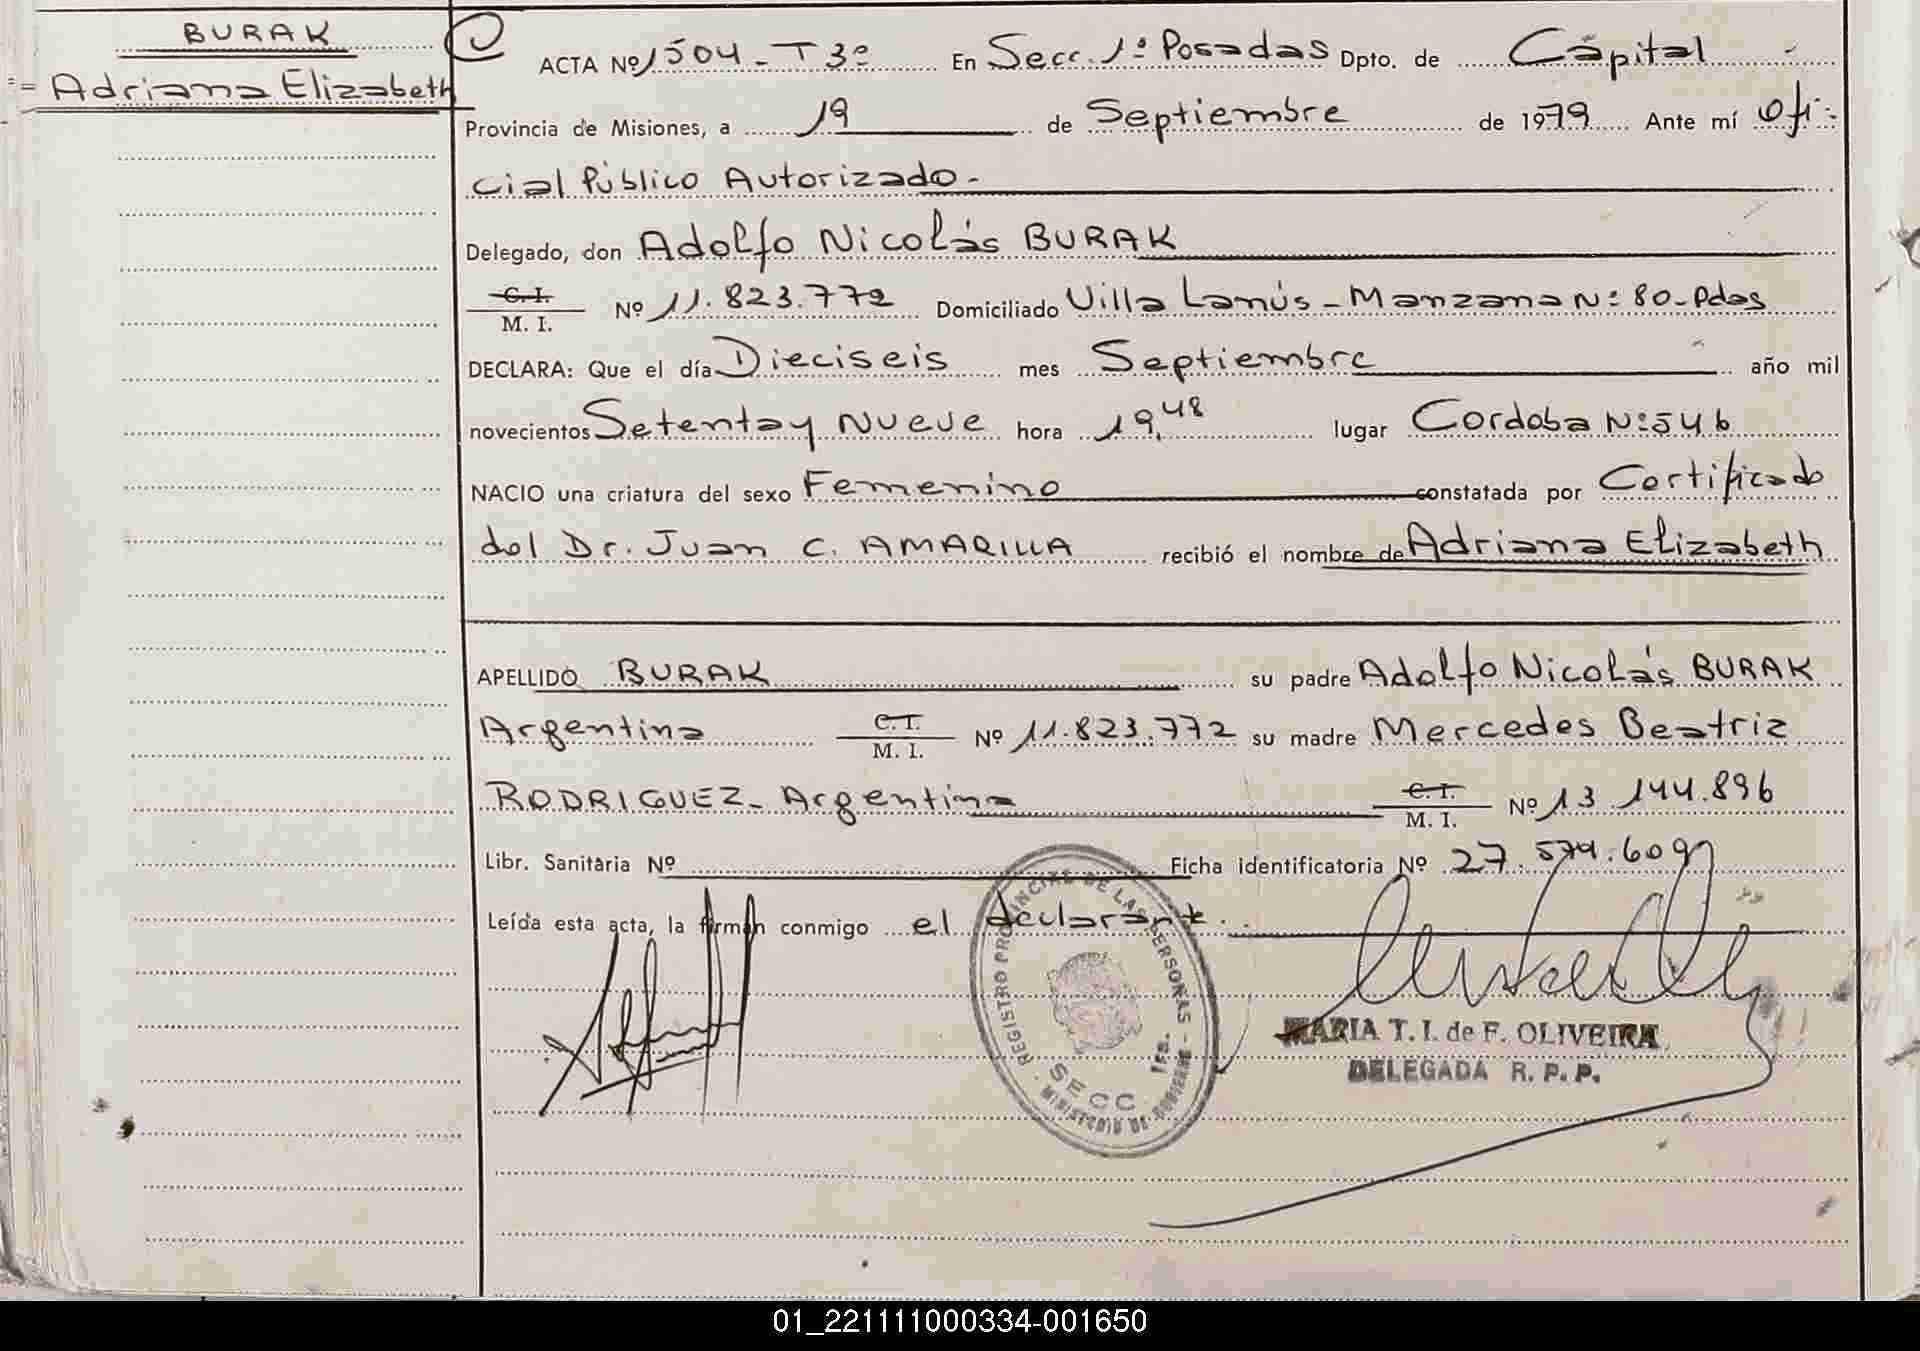 BURAK
Adriana Elizabeth
ACTA Nº 1504 - T 3º En Secc. 1ª Posadas Dpto. de Capital
Provincia de Misiones, a 19 de Septiembre de 1979 Ante mí Ofi-
cial Público Autorizado -
Delegado, don Adolfo Nicolás BURAK
C. I.
M. I. Nº 11.823.772 Domiciliado Villa Lanús - Manzana Nº 80 - Pdas
DECLARA: Que el día Dieciseis mes Septiembre año mil
novecientos Setenta y Nueve hora 19,48 lugar Cordoba Nº 546
NACIO una criatura del sexo Femenino constatada por Certificado
del Dr. Juan C. AMARILLA recibió el nombre de Adriana Elizabeth
APELLIDO BURAK su padre Adolfo Nicolás BURAK
Argentina C. I.
M. I. Nº 11.823.772 su madre Mercedes Beatriz
RODRIGUEZ - Argentina C. I.
M. I. Nº 13.144.896
Libr. Sanitaria Nº Ficha identificatoria Nº 27.574.609
Leída esta acta, la firman conmigo el declarante.
REGISTRO PROVINCIAL DE LAS PERSONAS - MINISTERIO DE GOBIERNO -
SECC 1ra.
MARIA T. I. de F. OLIVEIRA
DELEGADA R. P. P.
01_221111000334-001650